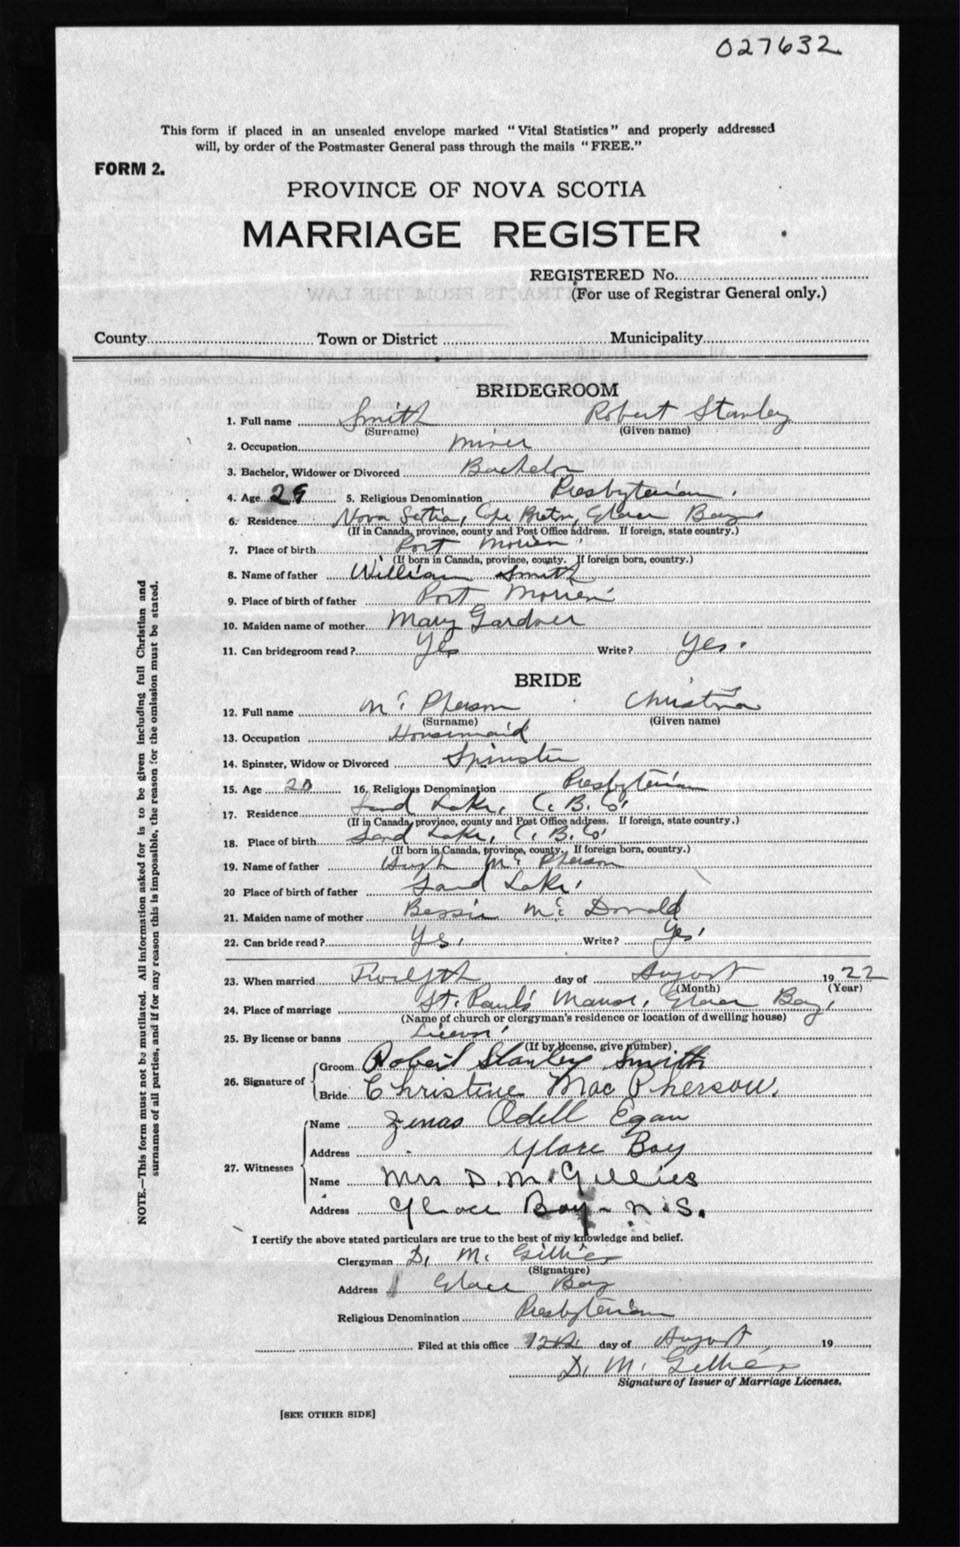 027632
This form if placed in an unsealed envelope marked "Vital Statistics" and properly addressed
will, by order of the Postmaster General pass through the mails "FREE."
FORM 2.
PROVINCE OF NOVA SCOTIA
MARRIAGE REGISTER
REGISTERED No.
(For use of Registrar General only.)
County Town or District Municipality
BRIDEGROOM
1. Full name Smith Robert Stanley
(Surname) (Given name)
2. Occupation Miner
3. Bachelor, Widower or Divorced Bachelor
4. Age 29 5. Religious Denomination Presbyterian.
6. Residence Nova Scotia, Cpe Breton, Glace Bay
(If in Canada, province, county and Post Office address. If foreign, state country.)
7. Place of birth Port Morien
(If born in Canada, province, county. If foreign born, country.)
8. Name of father William Smith
9. Place of birth of father Port Morien
10. Maiden name of mother Mary Gardner
11. Can bridegroom read? Yes Write? Yes.
BRIDE
12. Full name Mc Pherson Christina
(Surname) (Given name)
13. Occupation Housemaid
14. Spinster, Widow or Divorced Spinster
15. Age 20 16. Religious Denomination Presbyterian
17. Residence Sand Lake, C. B. Co.
(If in Canada, province, county and Post Office address. If foreign, state country.)
18. Place of birth Sand Lake, C. B. Co.
(If born in Canada, province, county. If foreign born, country.)
19. Name of father Hugh Mc Pherson
20 Place of birth of father Sand Lake.
21. Maiden name of mother Bessie Mc Donald
22. Can bride read? Yes. Write? Yes.
23. When married Twelfth day of August 1922
(Month) (Year)
24. Place of marriage St. Paul's Manse, Glace Bay.
(Name of church or clergyman's residence or location of dwelling house)
25. By license or banns License.
(If by license, give number)
26. Signature of Groom Robert Stanley Smith
Bride Christine Mac Pherson.
27. Witnesses Name Zenas Odell Egan
Address Glace Bay
Name Mrs D. McGillies
Address Glace Bay - N.S.
I certify the above stated particulars are true to the best of my knowledge and belief.
Clergyman D. Mc Gillies
(Signature)
Address Glace Bay
Religious Denomination Presbyterian
Filed at this office 12th day of August 19
D. Mc Gillies
Signature of Issuer of Marriage Licenses.
[SEE OTHER SIDE]
NOTE.—This form must not be mutilated. All information asked for is to be given including full Christian and
surnames of all parties, and if for any reason this is impossible, the reason for the omission must be stated.